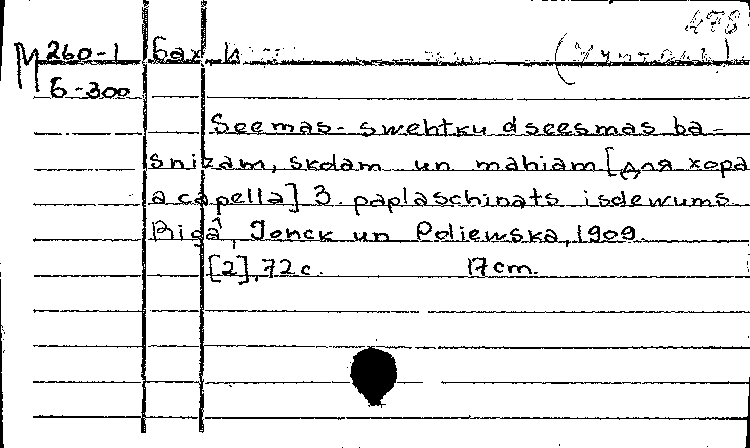 478
М 260-1 Бах И
Б-300
Seemas-swehtku dseesmas ba-
snizam, skolam un mahjam [для хора
a capella] 3. paplaschinats isdewums
Rigâ, Jonck un Poliewska, 1909.
[2], 72 с. 17 cm.